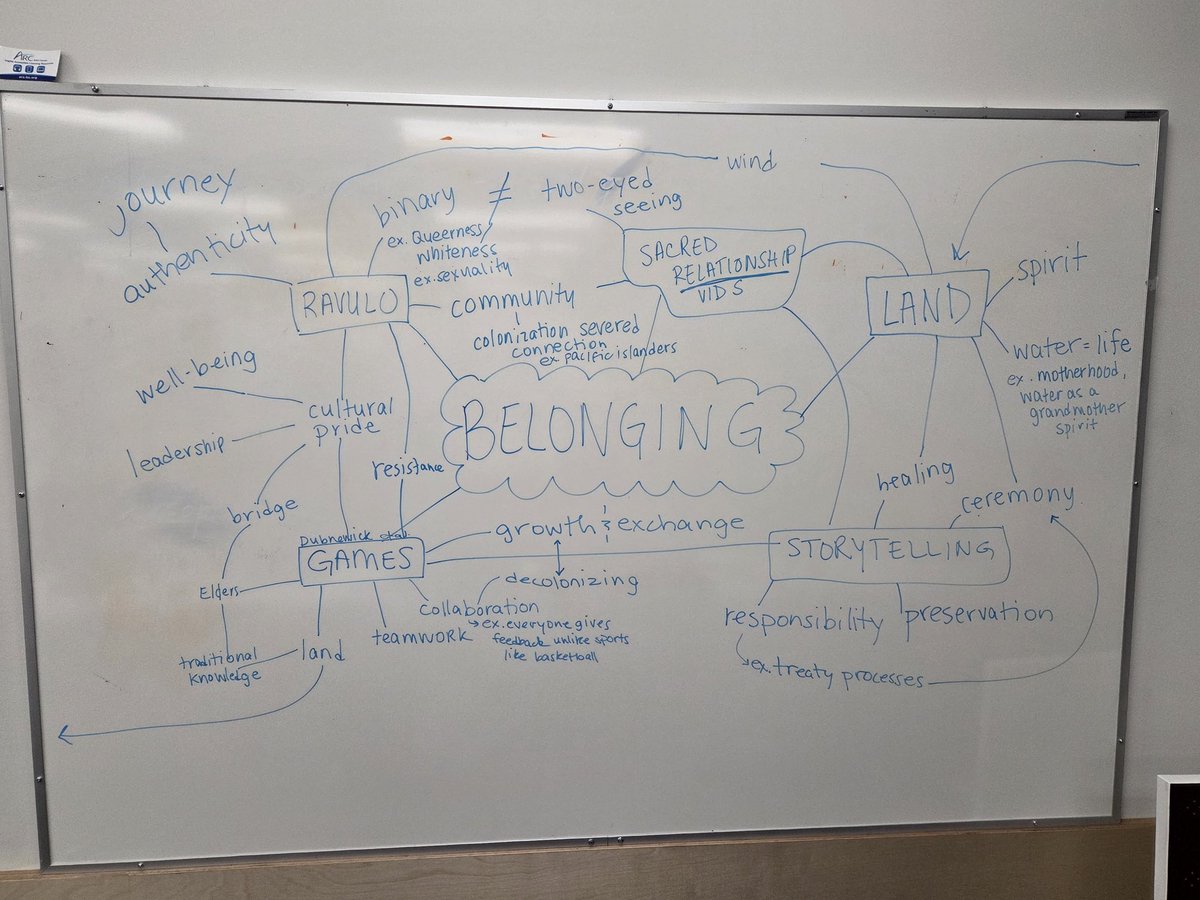 ARC
wind
journey
binary ≠ two-eyed
seeing
ex. Queerness
whiteness
ex. sexuality
authenticity
SACRED
RELATIONSHIP
VIDS
spirit
RAVULO
community
LAND
colonization severed
connection
ex. pacific islanders
water = life
ex. motherhood,
water as a
grandmother
spirit
well-being
cultural
pride
BELONGING
leadership
resistance
healing
ceremony
bridge
growth & exchange
GAMES
STORYTELLING
Elders
decolonizing
collaboration
ex. everyone gives
feedback unlike sports
like basketball
teamwork
responsibility
preservation
land
traditional
knowledge
ex. treaty processes